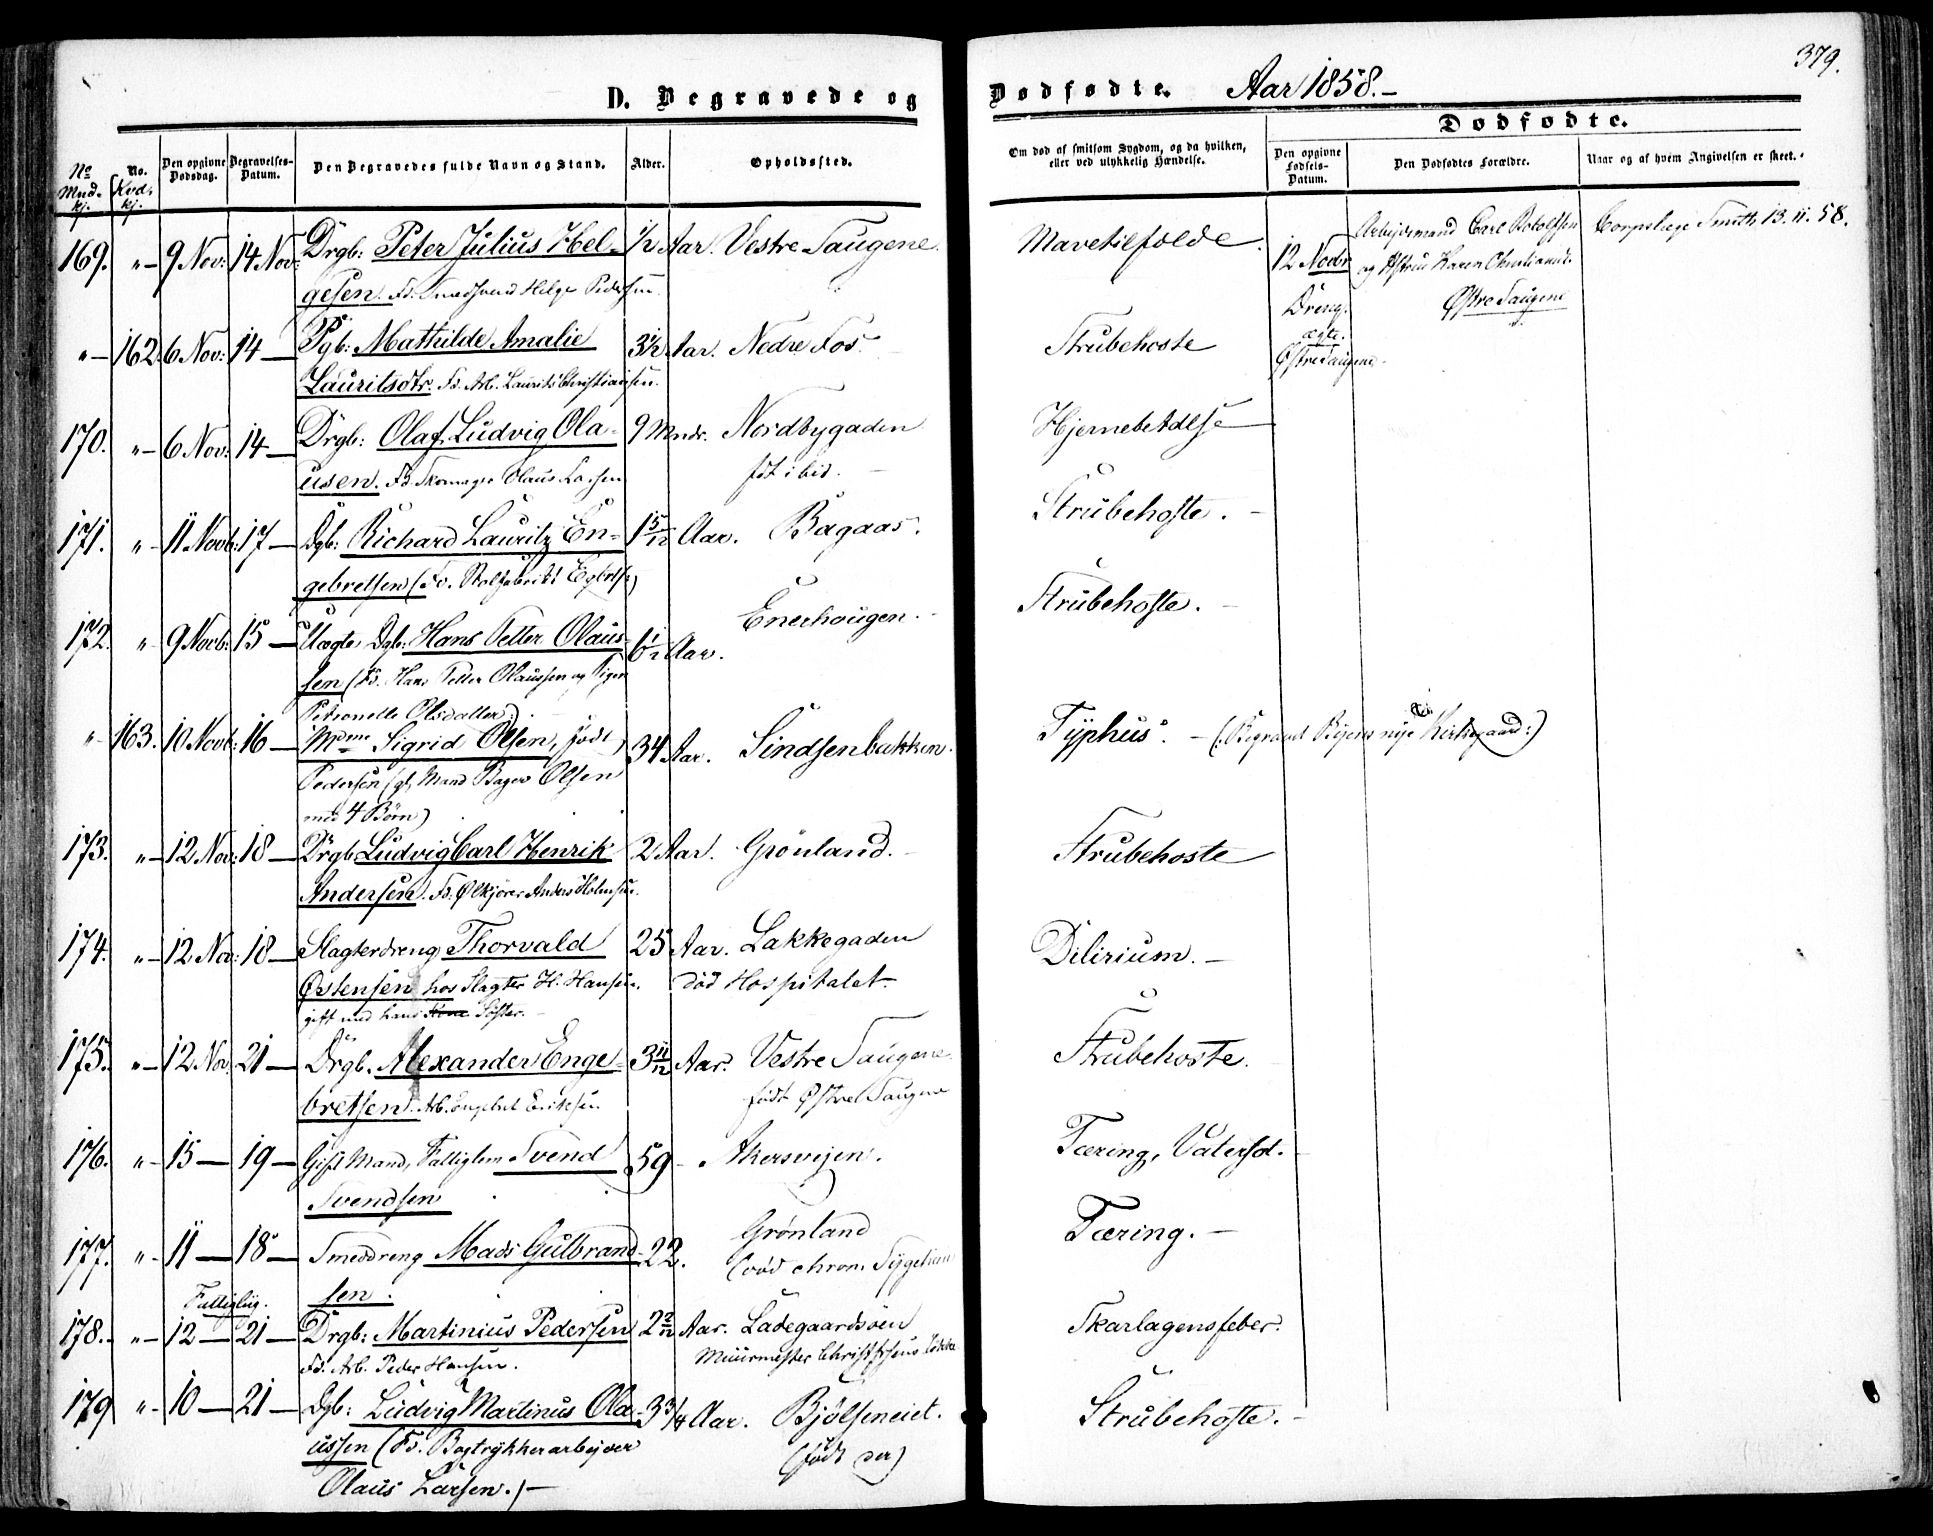 379.
D. Begravede og Dødfødte. Aar 1858.-
Dødfødte.
No. Mnd. kj.
No. Kvd. kj.
Den opgivne Dødsdag.
Begravelses-Datum.
Den Begravedes fulde Navn og Stand.
Alder.
Opholdssted.
Om død af smitsom Sygdom, og da hvilken, eller ved ulykkelig Hændelse.
Den opgivne Fødsels-Datum.
Den Dødfødtes Forældre.
Naar og af hvem Angivelsen er skeet.
169. "- 9 Nov: 14 Nov: Drgb: Peter Julius Hel- ½ Aar. Vestre Saugene. Mavetilfælde.
gesen. Fd. Smedsvend Helge Pedersen.
12 Novbr Arbeidsmand Carl Rotolfsen Corpslæge Smith 13.11.58.
og Karen Christiansd.
Dreng. Østre Saugene
ægte.
Østre Saugene
"- 162. 6 Nov: 14 - Pgb: Mathilde Amalie 3½ Aar. Nedre Fos. Strubehoste
Lauritsdtr. Fd. Arb. Laurits Christiansen.
170. "- 6 Nov: 14 - Drgb: Olaf Ludvig Ola- 9 Mndr. Nordbygaden Hjernebetdlse
usen. Fd. Skomager Olaus Larsen
født ibid.
171. "- 11 Novb: 17 - Dgb: Richard Lauritz En- 1 5/12 Aar. Bagaas. Strubehoste. -
gebretsen (Fd. Engebretsen)
172. "- 9 Novb: 15 - Uægte Dgb: Hans Petter Olaus- 6½ Aar. Enerhougen. - Strubehoste. -
sen (Fd. Hans Petter Olaussen og Pigen
Petronelle Olsdatter)
"- 163. 10 Novb: 16 - Mdme Sigrid Olsen, født 34 Aar. Sindsenbakken. Typhus. - (: Begravet Byens nye Kirkegaard:)
Pedersen (gl. Mand Bager Olsen
med 4 Børn)
173. "- 12 Nov: 18 - Drgb Ludvig Carl Henrik 2 Aar. Grønland. - Strubehoste
Andersen. Fd: Ølkjører Anders
174. "- 12 Nov: 18 - Slagterdreng Thorvald 25 Aar. Lakkegaden Delirium. -
Østensen hos Slagter H. Hansen. død Hospitalet.
gift med hans Kone Søster. -
175. "- 12 Nov. 21 - Drgb. Alexander Enge- 3 11/12 Aar. Vestre Saugene. Strubehoste.
bretsen. Arb. Engebret Eriksen. født Østre Saugene
176. "- 15 - 19 - Gift Mand, Fattiglem Svend 59 - Akersveien. Tæring, Vatersot. -
Svendsen
177. "- 11 - 18 - Smeddreng Mads Gulbrand- 22. Grønland Tæring. -
sen. (død chron. Sygehuus
Fattigliig.
178. "- 12 - 21 - Drgb: Martinius Pedersen 2 2/12 Aar. Ladegaardsøen Skarlagensfeber.
Fd. Arb. Peder Hansen. Muurmester Løkke
179 "- 10 - 21 - Dgb: Ludvig Martinus Ola- 3 3/4 Aar. Bjølseneiet. Strubehoste. -
ussen (Fd. Bogtrykkerarbejder (født der)
Olaus Larsen.) -